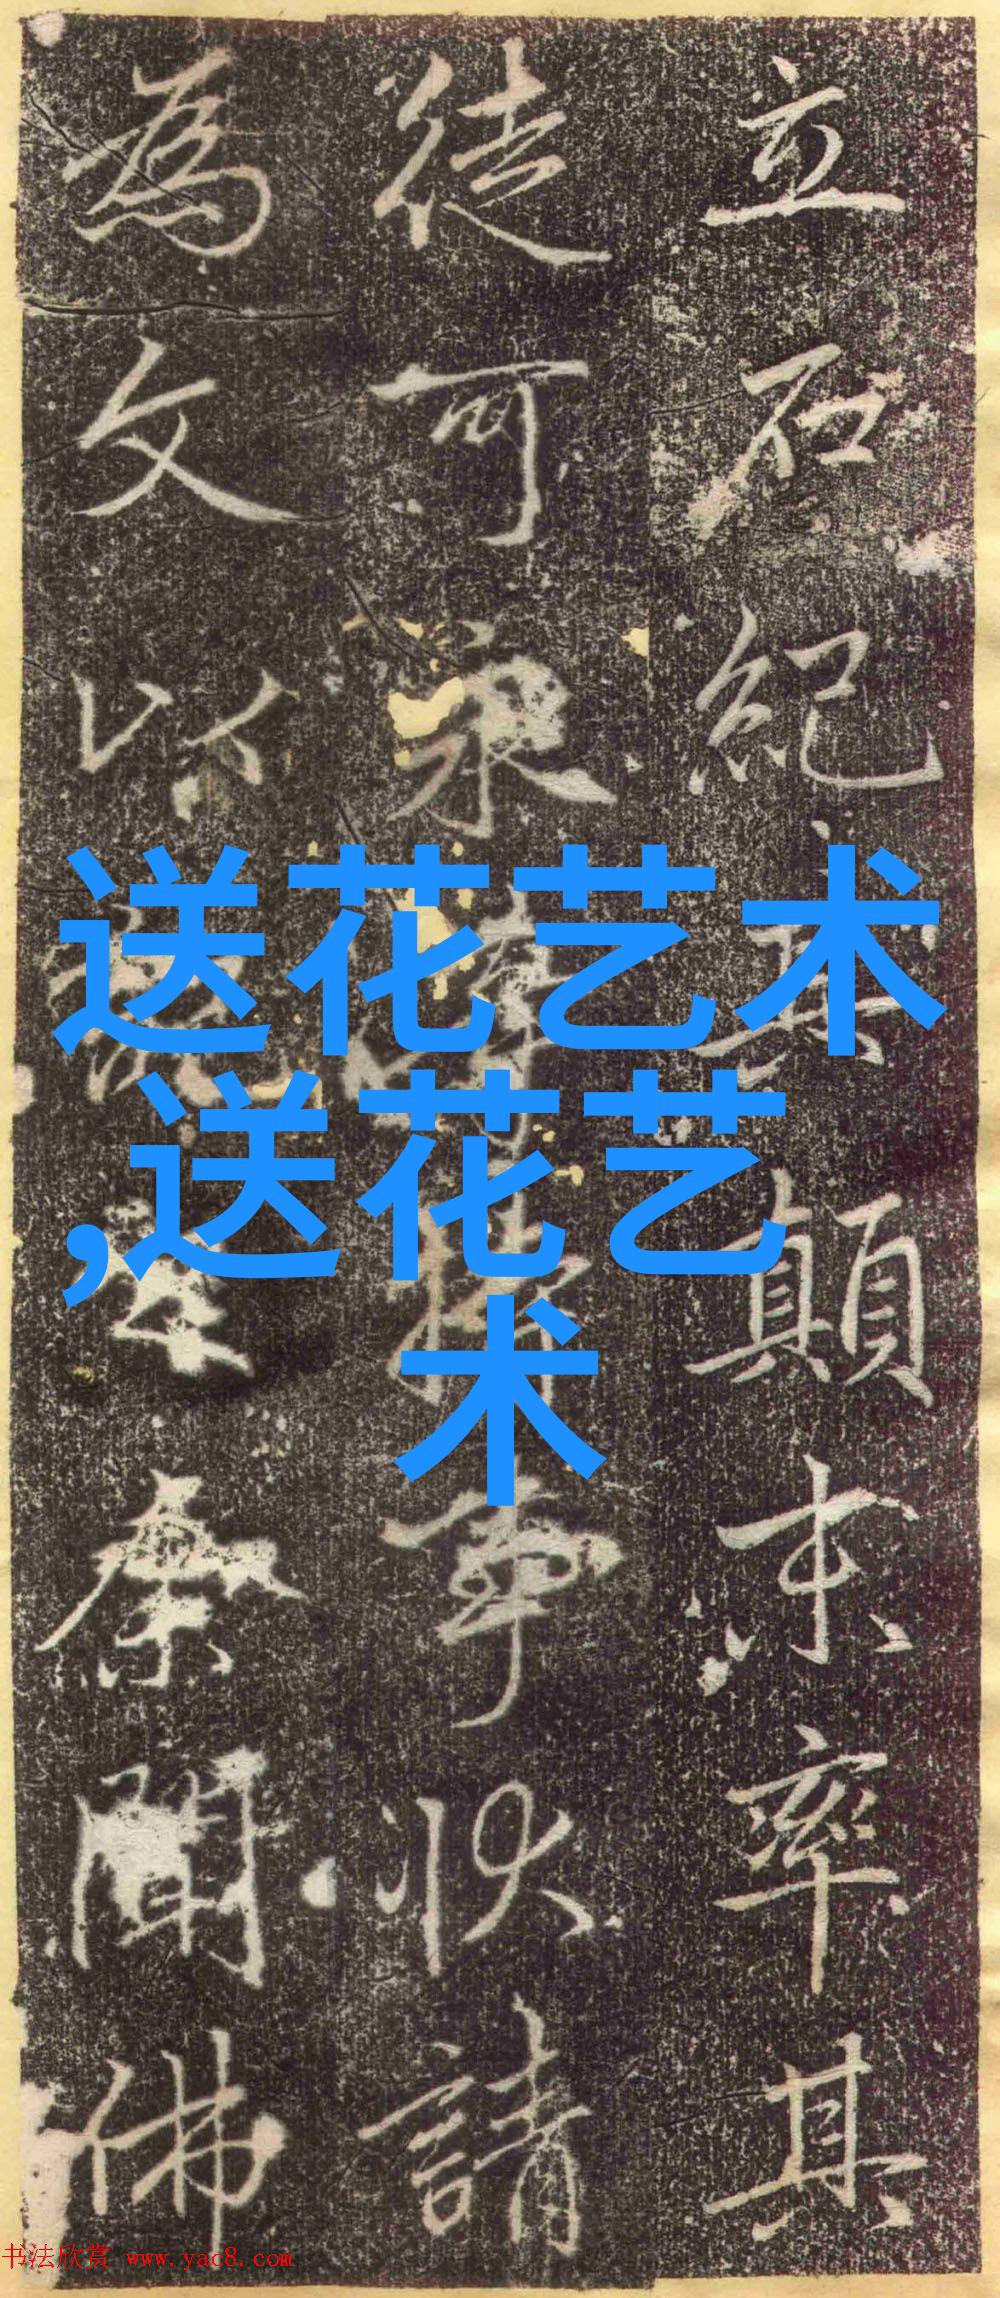 立石紀其顛末率其
徒可永持事狀請
為文以聞佛
送花艺术
,送花艺
术
书法欣赏 www.yac8.com